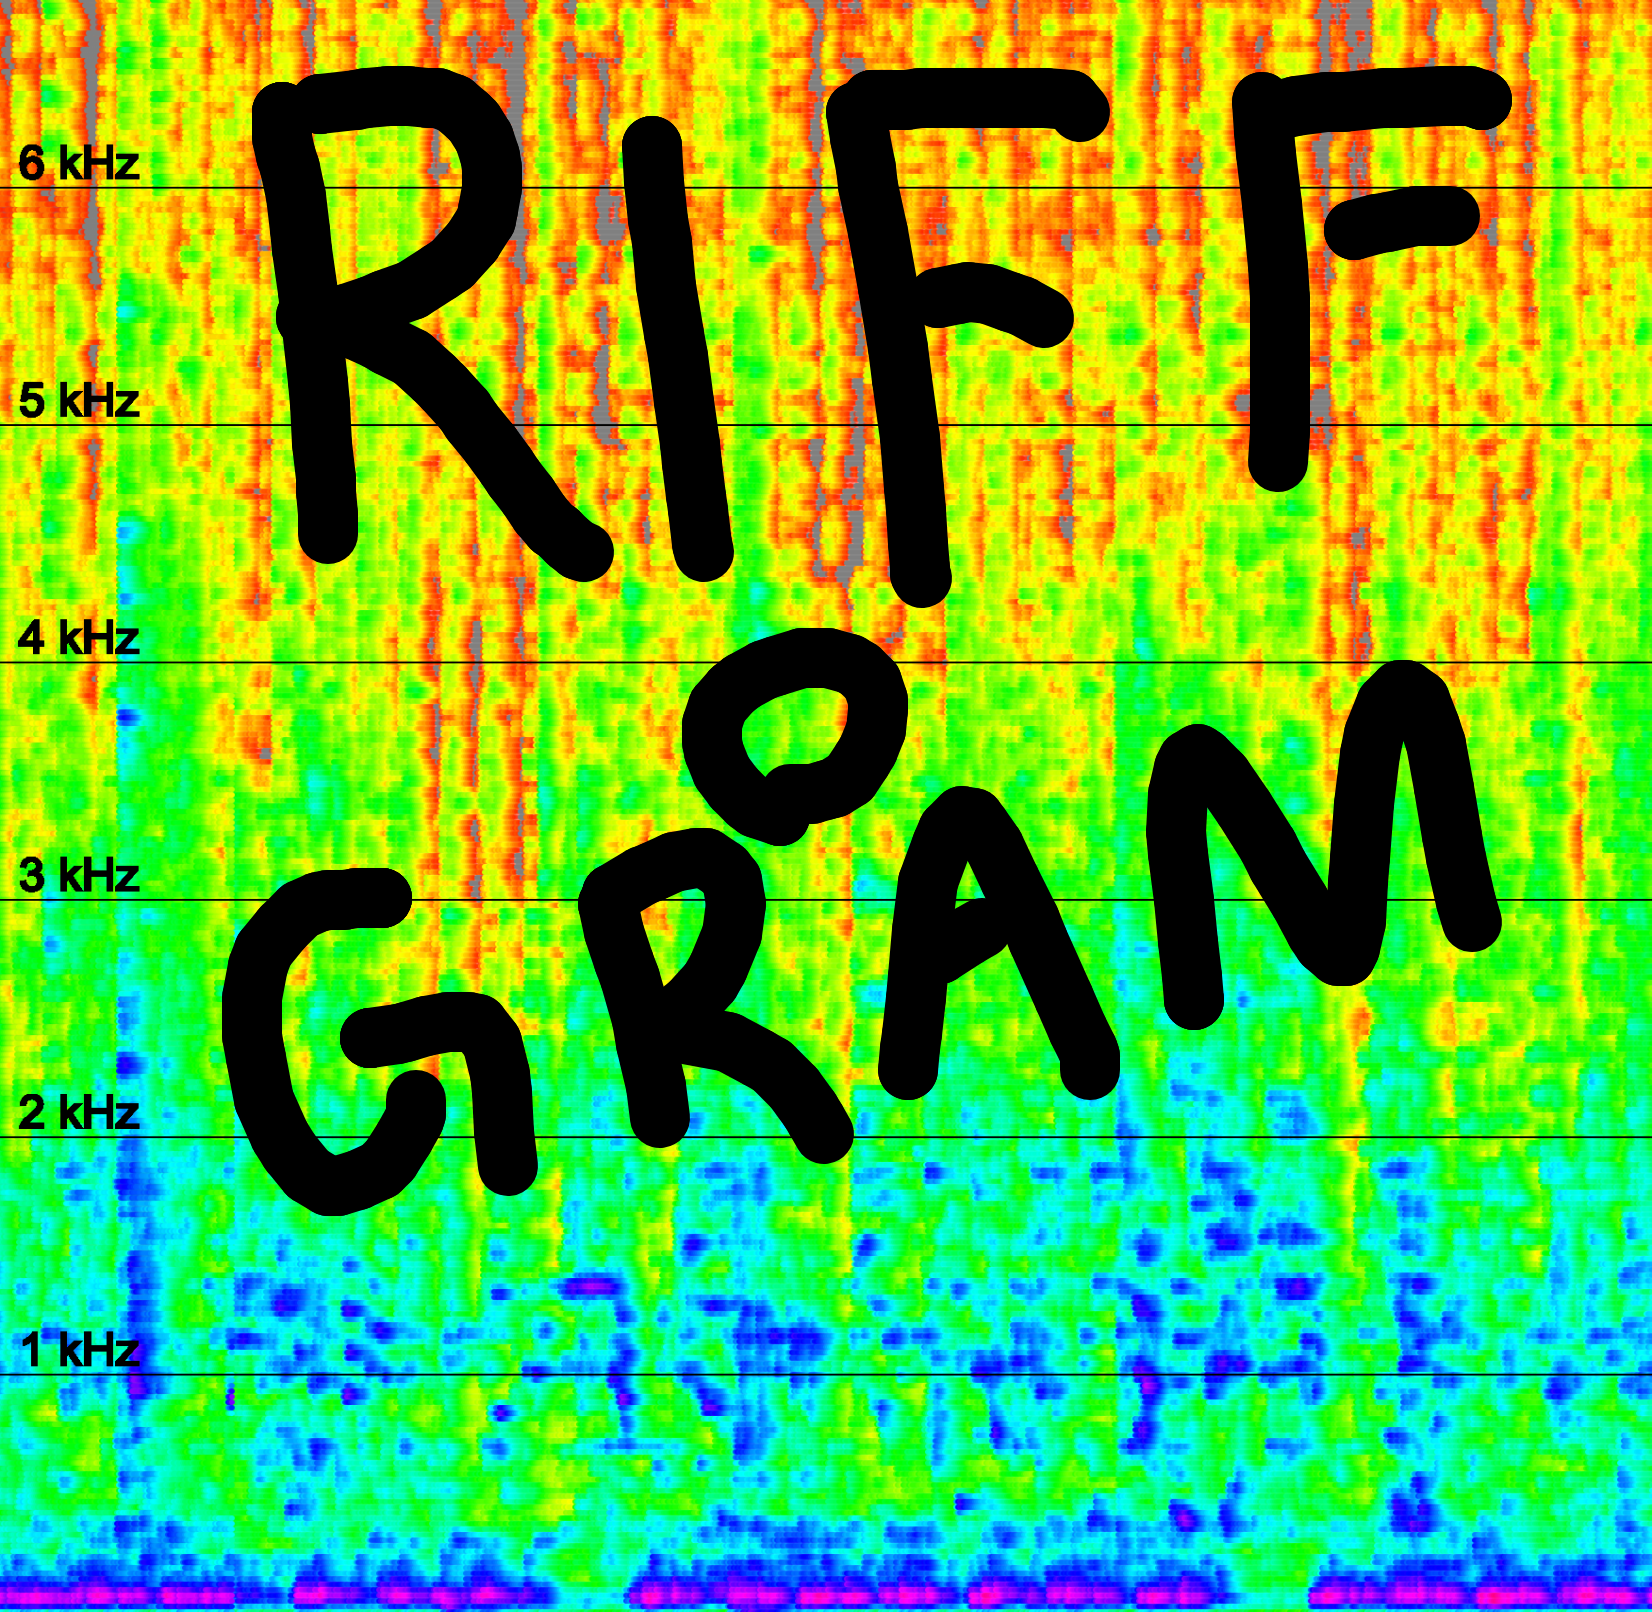 RIFF
O
GRAM
6 kHz
5 kHz
4 kHz
3 kHz
2 kHz
1 kHz